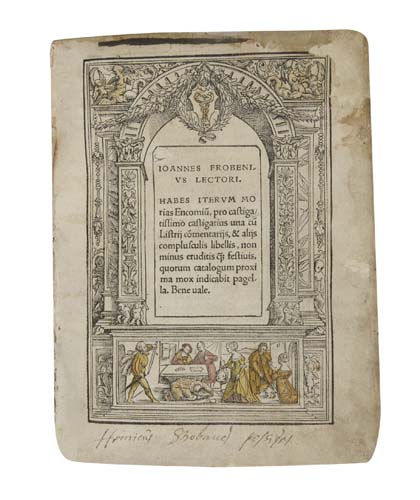 IOANNES FROBENI,
VS LECTORI.
HABES ITERVM MO
rias Encomiũ, pro castiga,
tissimo castigatius una cũ
Listrij cõmentarijs, & alijs
complusculis libellis, non
minus eruditis q̃ festiuis,
quorum catalogum proxi
ma mox indicabit pagel,
la. Bene uale.